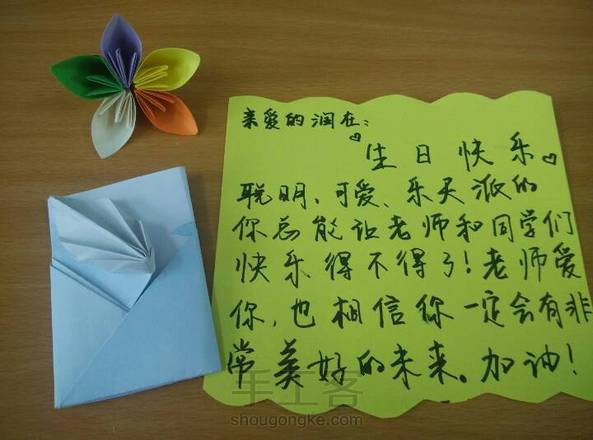 亲爱的润在：
生日快乐
聪明、可爱、乐天派的
你总能让老师和同学们
快乐得不得了！老师爱
你，也相信你一定会有非
常美好的未来。加油！
手工客
shougongke.com